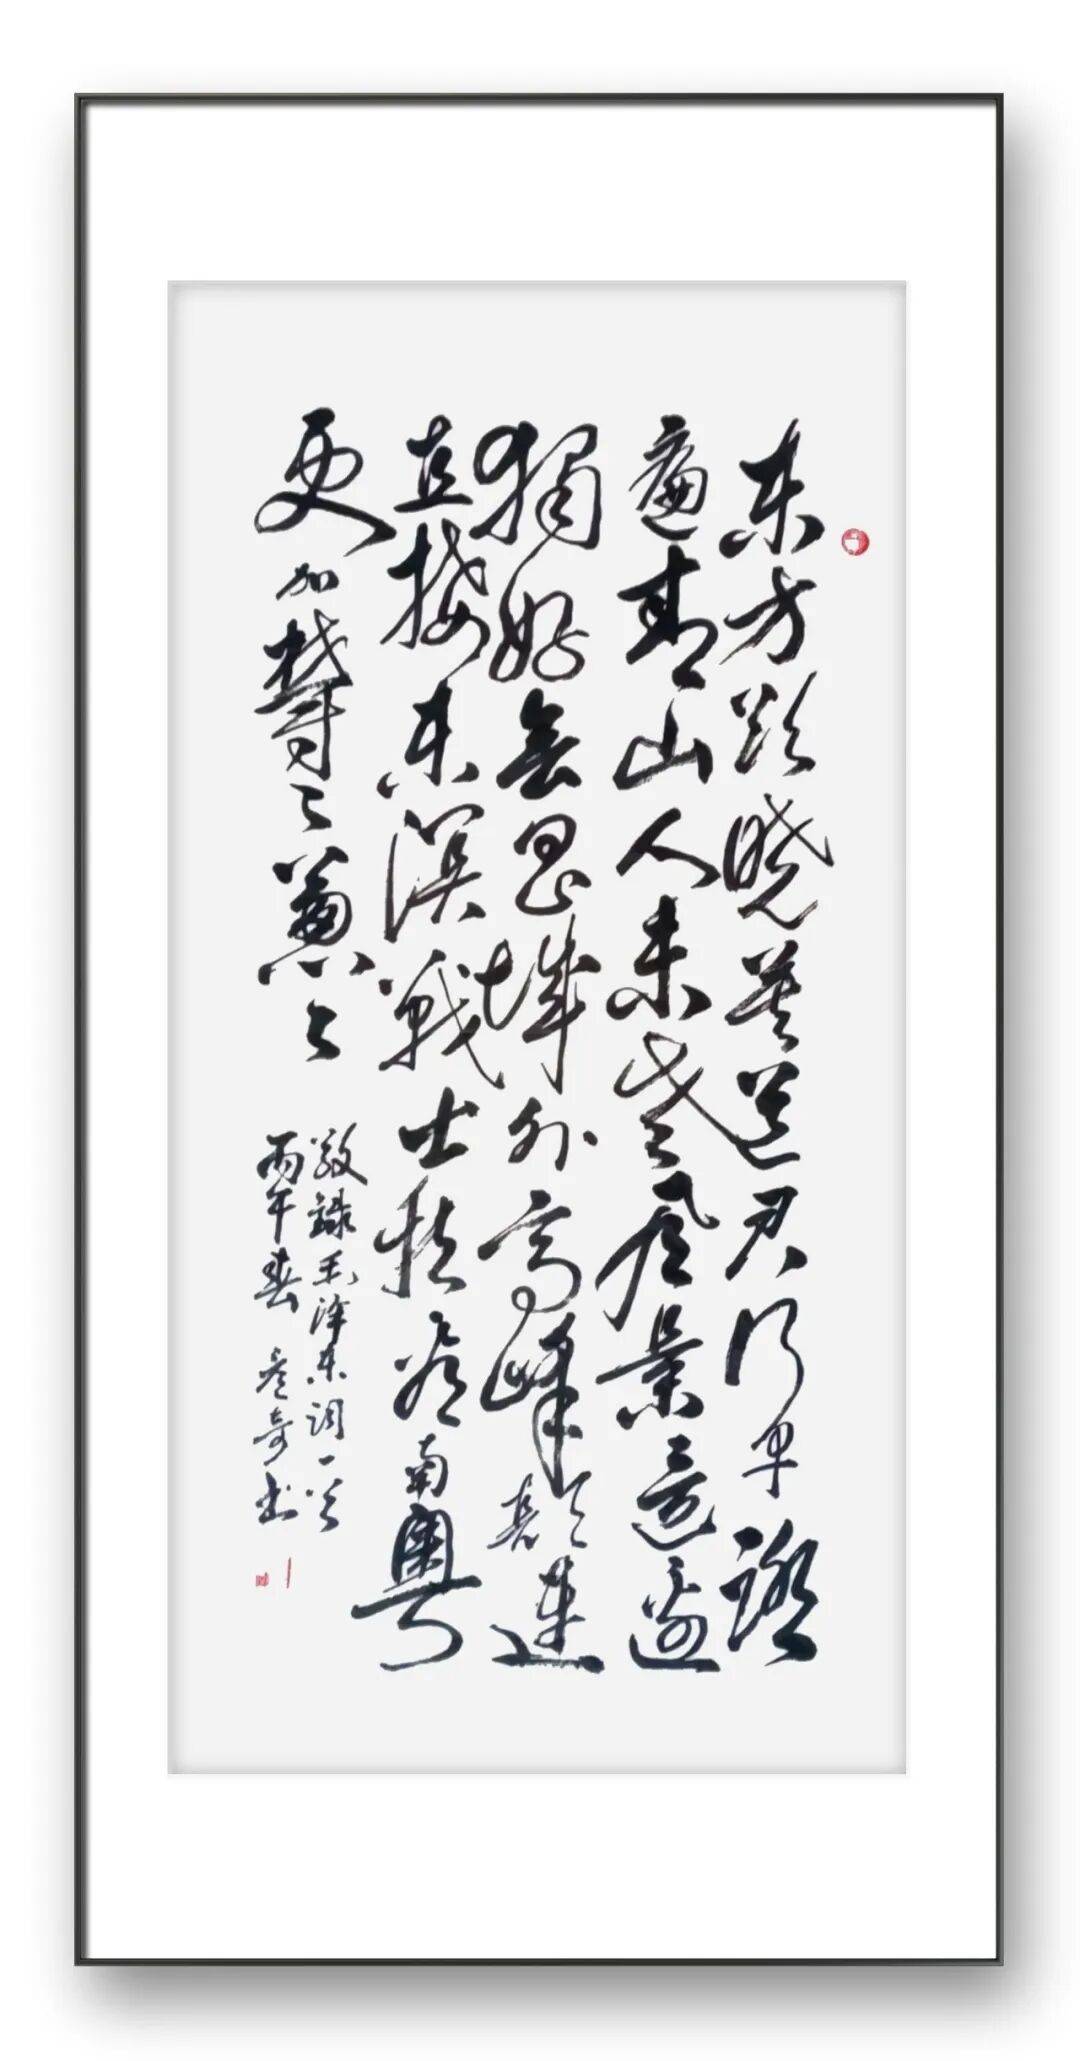 东方欲晓莫道君行早踏
遍青山人未老风景這邊
獨好会昌城外高峰颠连
直接东溟戰士指看南粤
更加鬱〻蔥〻
敬録毛泽东词一首
丙午春 奇书